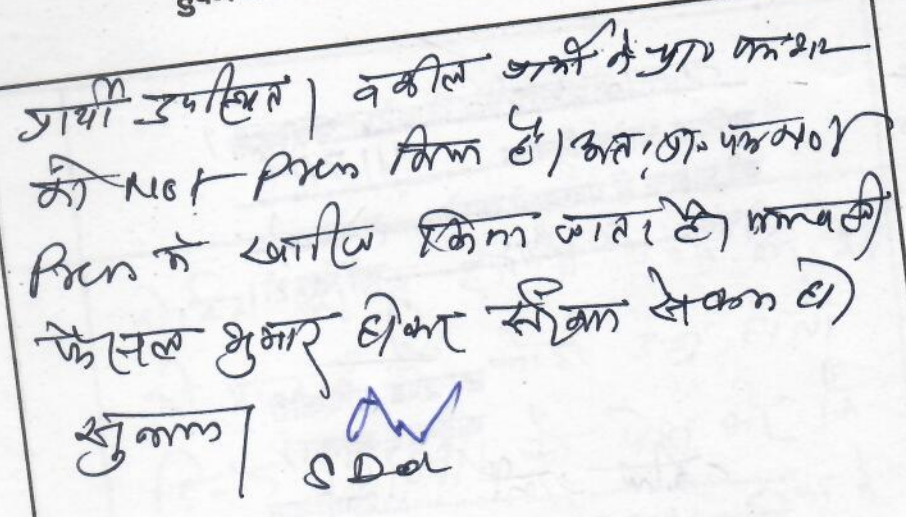 प्रार्थी उपस्थित। वकील प्रार्थी ने प्रा० पत्र
को Not Press किया है। अतः प्रा. पत्र Not
Press में खारिज किया जाता है। पत्रावली
फैसल शुमार होकर नम्बर से कम हो।
सुनाया।
SDO